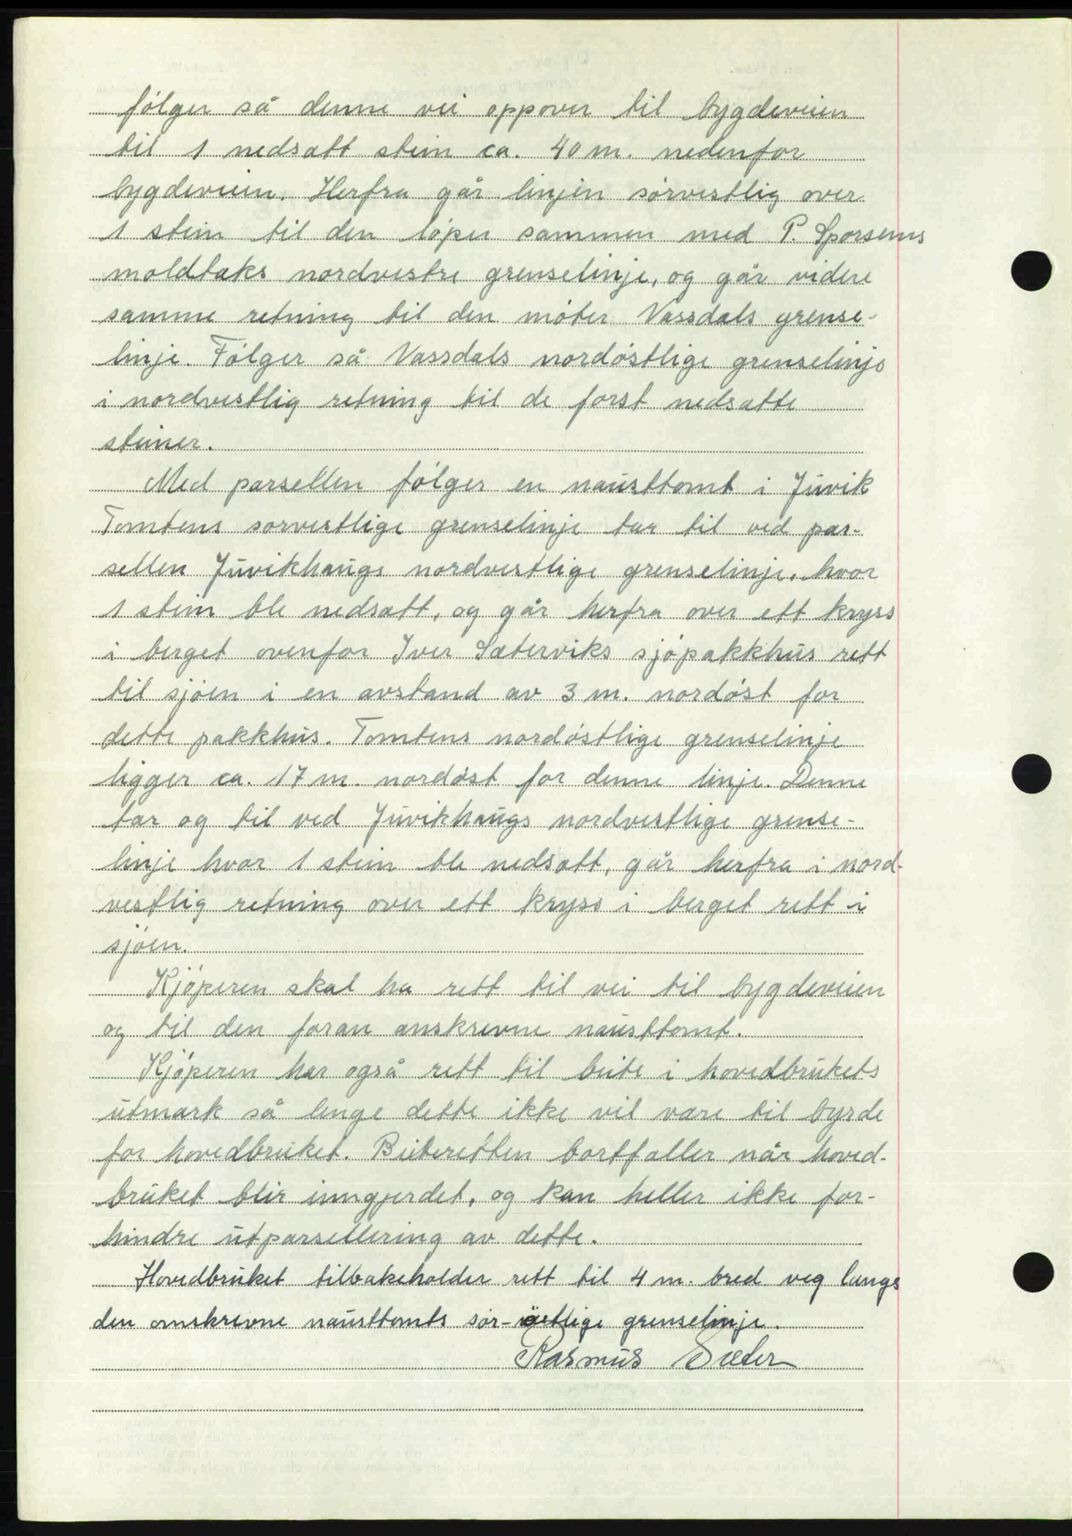 følger så denne vei oppover til bygdeveien
til 1 nedsatt stein ca. 40 m. nedenfor
bygdeveien. Herfra går linjen sørvestlig over
1 stein til den løper sammen med P. Sporsems
moldtaks nordvestre grenselinje, og går videre
samme retning til den møter Vassdals grense-
linje. Følger så Vassdals nordøstlige grenselinje
i nordvestlig retning til de først nedsatte
steiner.
Med parsellen følger en nausttomt i Juvik
Tomtens sørvestlige grenselinje tar til ved par-
sellen Juvikhaugs nordvestlige grenselinje, hvor
1 stein ble nedsatt, og går herfra over ett kryss
i berget ovenfor Iver Sæterviks sjøpakkhus rett
til sjøen i en avstand av 3 m. nordøst for
dette pakkhus. Tomtens nordøstlige grenselinje
ligger ca. 17 m. nordøst for denne linje. Denne
tar og til ved Juvikhaugs nordvestlige grense-
linje hvor 1 stein ble nedsatt, går herfra i nord-
vestlig retning over ett kryss i berget rett i
sjøen.
Kjøperen skal ha rett til vei til bygdeveien
og til den foran omskrevne nausttomt.
Kjøperen har også rett til beite i hovedbrukets
utmark så lenge dette ikke vil være til byrde
for hovedbruket. Beiteretten bortfaller når hoved-
bruket blir inngjerdet, og kan heller ikke for-
hindre utparsellering av dette.
Hovedbruket tilbakeholder rett til 4 m. bred veg langs
den omskrevne nausttomts sør-østlige grenselinje.
Rasmus Sæter